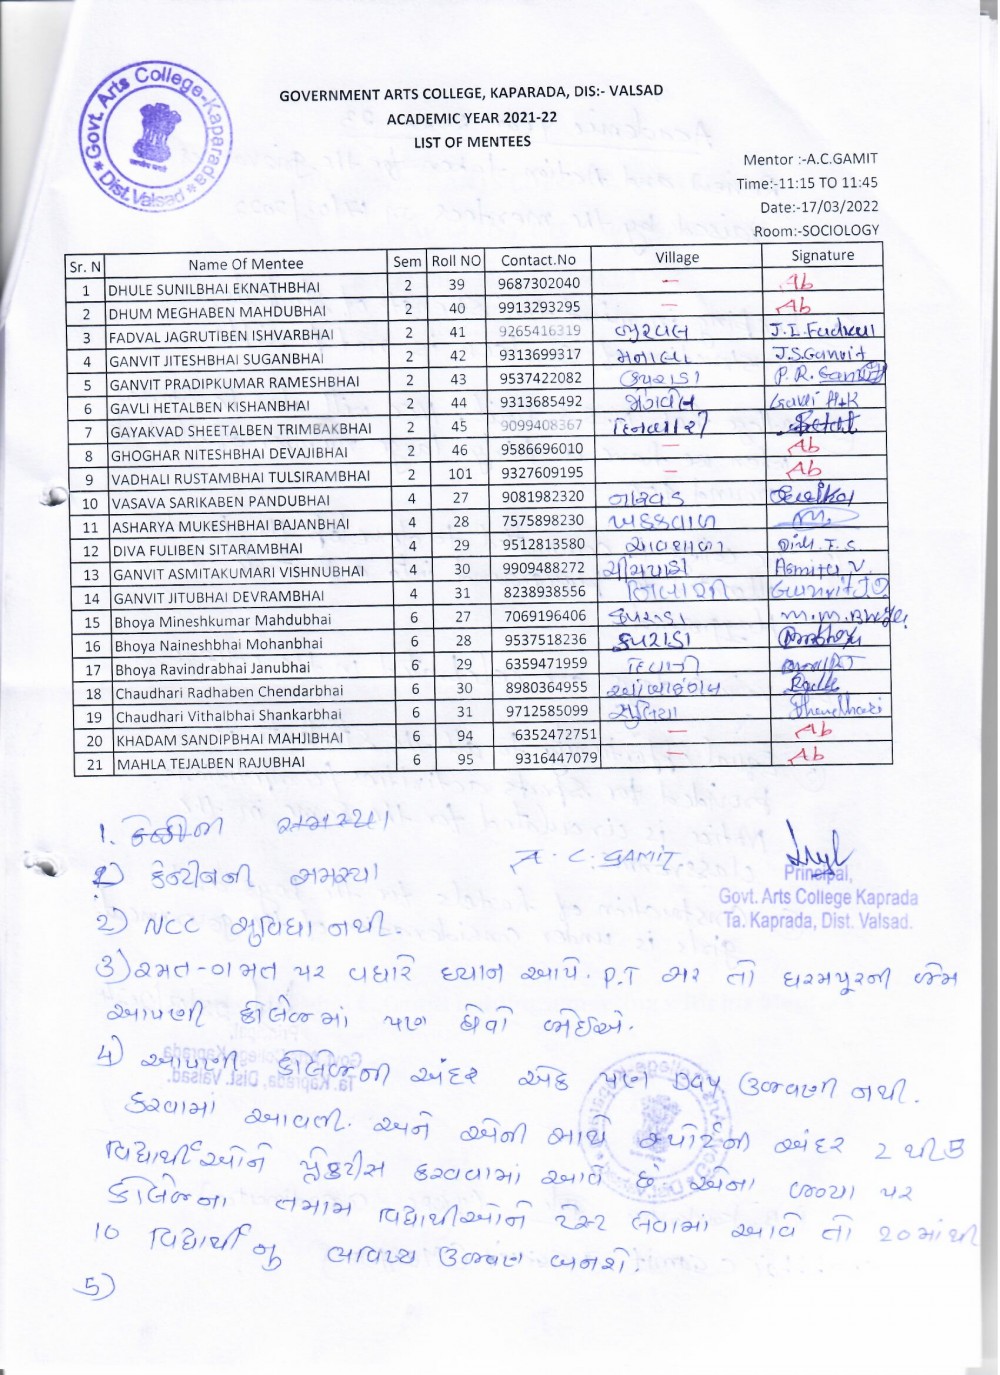 Govt. Arts College-Kaparada
Dist. Valsad
GOVERNMENT ARTS COLLEGE, KAPARADA, DIS:- VALSAD
ACADEMIC YEAR 2021-22
LIST OF MENTEES
Mentor :-A.C.GAMIT
Time:-11:15 TO 11:45
Date:-17/03/2022
Room:-SOCIOLOGY
Sr. N Name Of Mentee Sem Roll NO Contact.No Village Signature
1 DHULE SUNILBHAI EKNATHBHAI 2 39 9687302040 — Ab
2 DHUM MEGHABEN MAHDUBHAI 2 40 9913293295 — Ab
3 FADVAL JAGRUTIBEN ISHVARBHAI 2 41 9265416319 J.I.Fadval
4 GANVIT JITESHBHAI SUGANBHAI 2 42 9313699317 J.S.Ganvit
5 GANVIT PRADIPKUMAR RAMESHBHAI 2 43 9537422082 P.R.Ganvit
6 GAVLI HETALBEN KISHANBHAI 2 44 9313685492 Gavli H.K
7 GAYAKVAD SHEETALBEN TRIMBAKBHAI 2 45 9099408367
8 GHOGHAR NITESHBHAI DEVAJIBHAI 2 46 9586696010 — Ab
9 VADHALI RUSTAMBHAI TULSIRAMBHAI 2 101 9327609195 — Ab
10 VASAVA SARIKABEN PANDUBHAI 4 27 9081982320 બારવડ
11 ASHARYA MUKESHBHAI BAJANBHAI 4 28 7575898230 ખડકવાળ
12 DIVA FULIBEN SITARAMBHAI 4 29 9512813580 Diva. F. S.
13 GANVIT ASMITAKUMARI VISHNUBHAI 4 30 9909488272 Asmita V.
14 GANVIT JITUBHAI DEVRAMBHAI 4 31 8238938556 Ganvit J D
15 Bhoya Mineshkumar Mahdubhai 6 27 7069196406 કપરાડા M.M.Bhoye
16 Bhoya Naineshbhai Mohanbhai 6 28 9537518236 કપરાડા
17 Bhoya Ravindrabhai Janubhai 6 29 6359471959
18 Chaudhari Radhaben Chendarbhai 6 30 8980364955
19 Chaudhari Vithalbhai Shankarbhai 6 31 9712585099 સુલિયા
20 KHADAM SANDIPBHAI MAHJIBHAI 6 94 6352472751 — Ab
21 MAHLA TEJALBEN RAJUBHAI 6 95 9316447079 — Ab
1. સમસ્યા
1) કેન્ટીનની સમસ્યા
A. C. GAMIT.
Principal,
Govt. Arts College Kaprada
Ta. Kaprada, Dist. Valsad.
2) NCC સુવિધા નથી
3) રમત-ગમત પર વધારે ધ્યાન આપે. P.T સર તો ધરમપૂરની જેમ
આપણી કોલેજમાં પણ હોવો જોઈએ.
4) આપણી કોલેજની અંદર એક પણ Day ઉજવણી નથી.
કરવામાં આવતી. અને એની સાથે સ્પોર્ટની અંદર 2 થી 5
વિદ્યાર્થીઓને પ્રેક્ટીસ કરાવવામાં આવે છે એના જગ્યા પર
કોલેજના તમામ વિદ્યાર્થીઓને ટેસ્ટ લેવામાં આવે તો 20માંથી
10 વિદ્યાર્થીનૂ ભવિષ્ય ઉજવળ બનશે.
5)